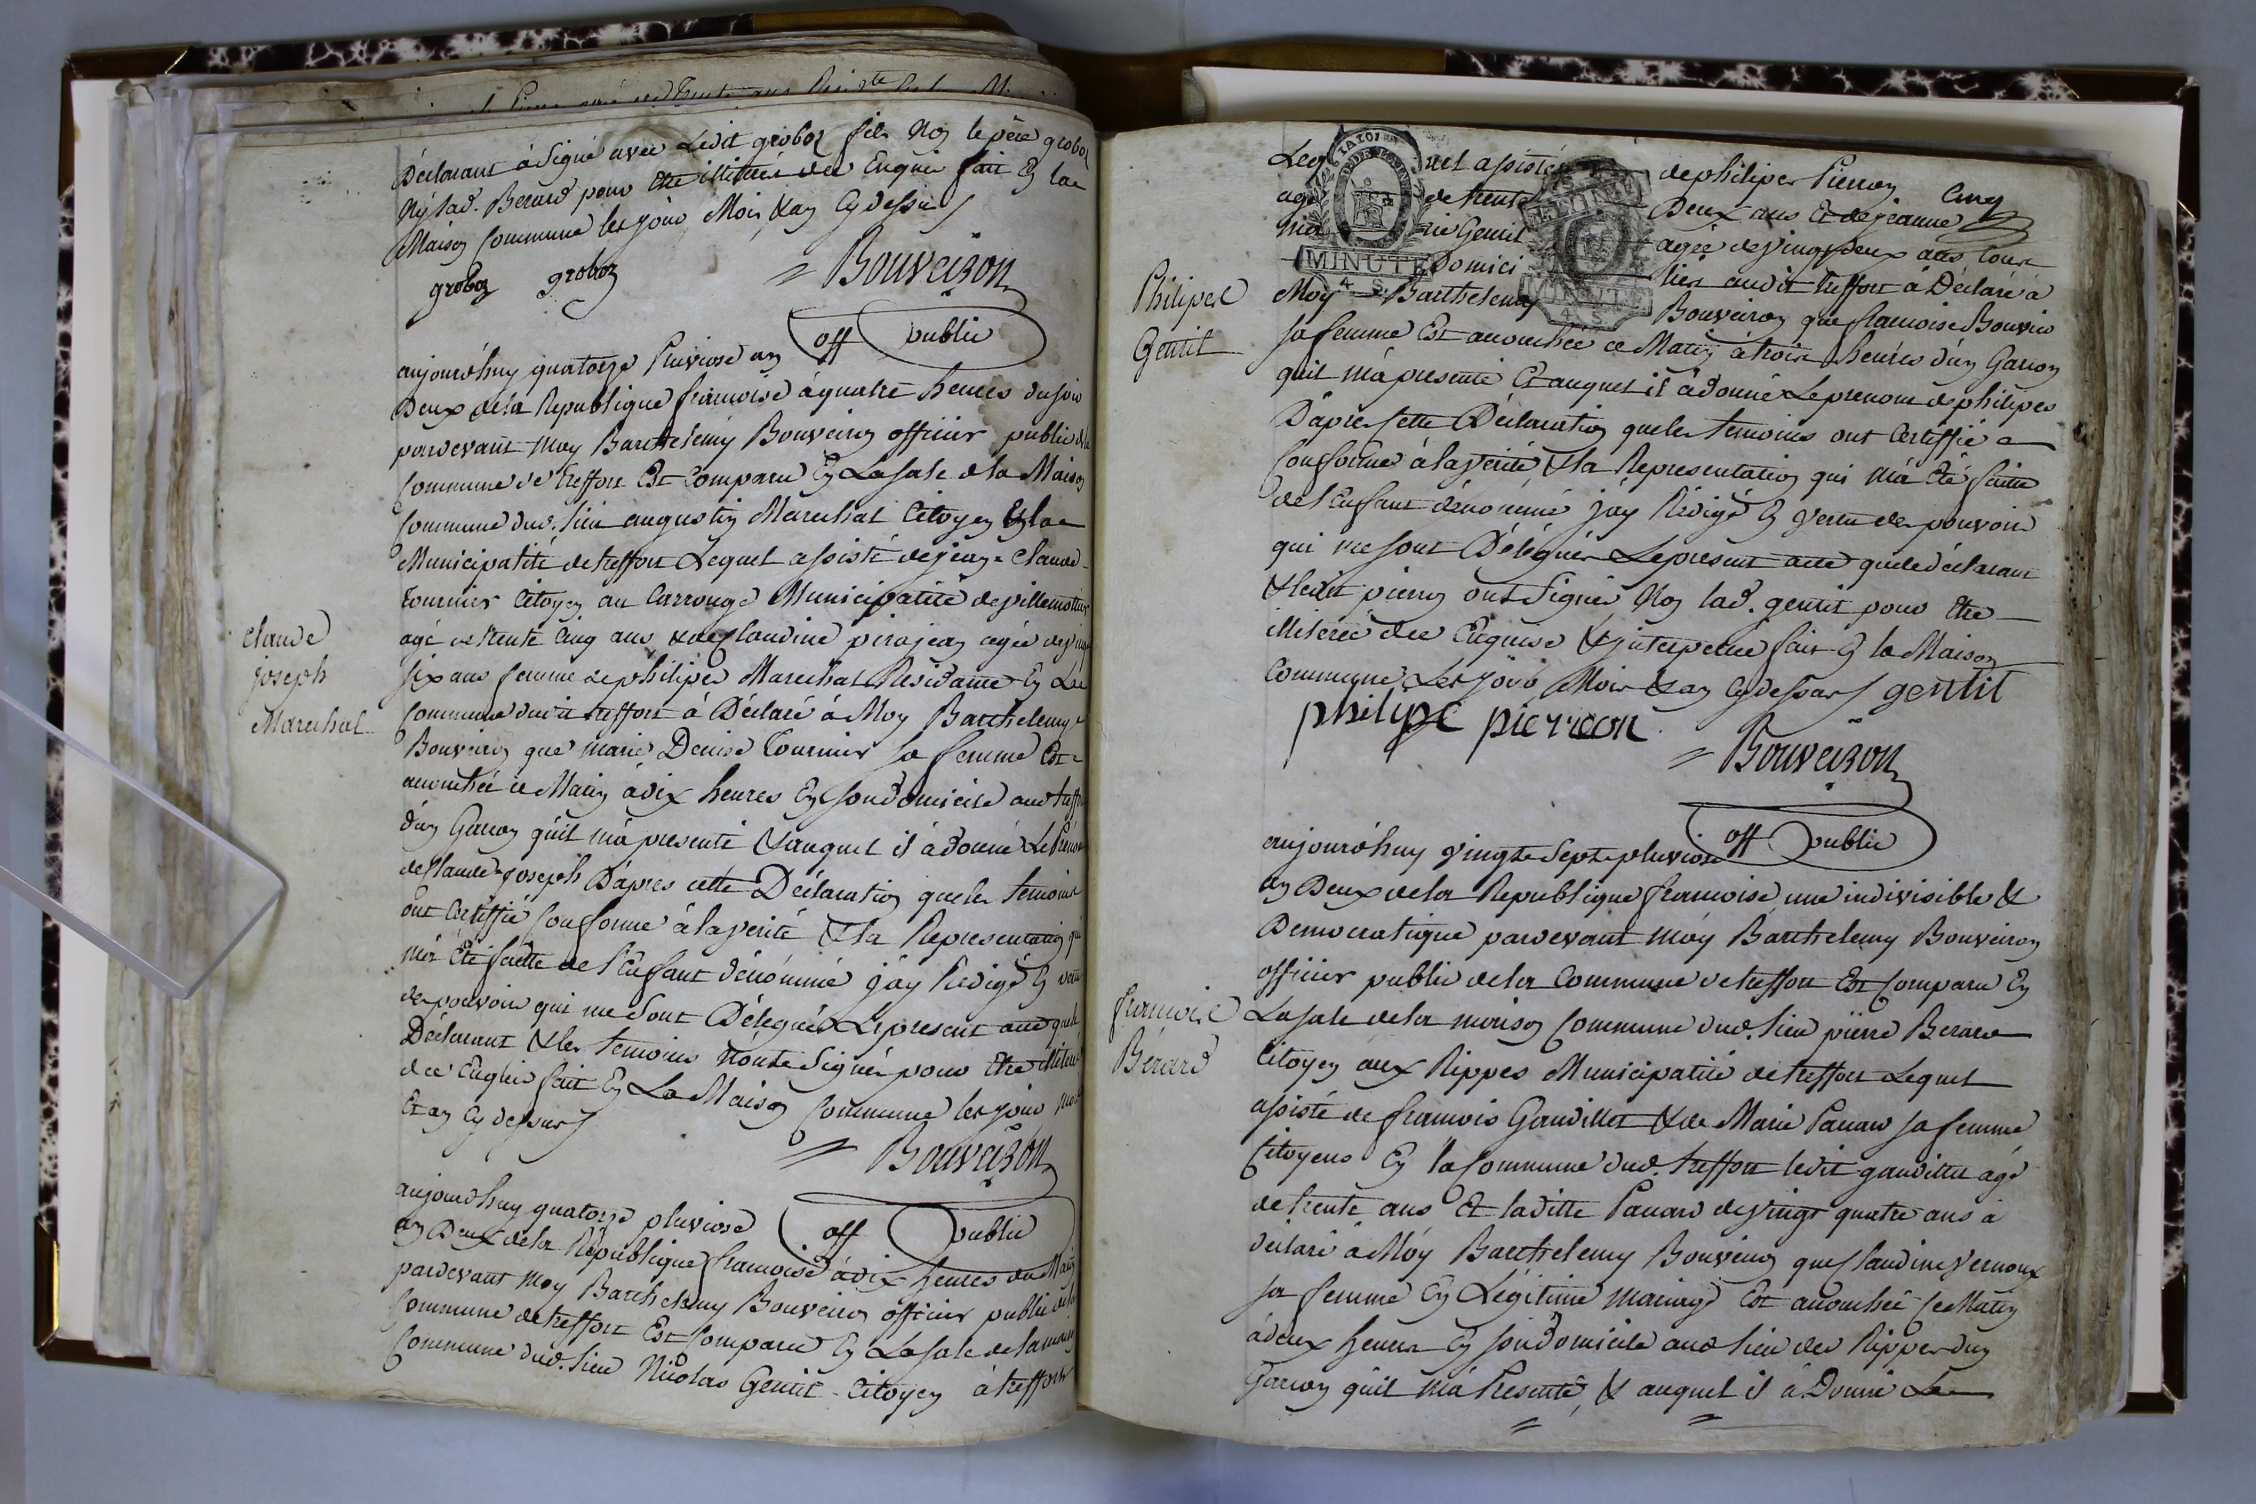 Déclarant à Signé avec Ledit groboz fils Non le père groboz
Ny lad. Berard pour être illitterés dee Enquis fait En la
Maison Commune les jour Mois & an Cy dessus
groboz groboz
Bouveiron
off public
aujourd'huy quatorze Pluviose an
Deux dela Republique françoise à quatre heures du soir
pardevant moy Barthelemy Bouveiron officier public de la
Commune de treffort Est Comparu En La Sale de la Maison
Commune dud. lieu augustin Marechal Citoyen En la
Municipalité de treffort Lequel assisté de jean Claude
tournier Citoyen au Carrouge Municipalité de villemotier
agé de trente Cinq ans & de Claudine pirajean agée de vingt
six ans femme de philipes Marechal Residante En La
Commune dudit treffort à Déclaré à Moy Barthelemy
Bouveiron que marie Denise tournier sa femme Est
accouchée ce Matin à dix heures En son domicile aud treffort
d'un Garcon qu'il m'a presenté & auquel il à donné Le Prénom
de Claude Joseph D'apres cette Déclaration que les temoins
ont Certiffié Conforme à la verité & la Representation qui
m'a Eté faitte de l'Enfant dénommé j'ay Redigé En vertu
des pouvoirs qui me Sont Délegués Le present acte que le
Déclarant & les temoins n'ont Signés pour Etre illiterés
dee Enquis fait En La Maison Commune les jour mois
Et an Cy dessus
Claude
joseph
Marechal
Bouveiron
off public
aujourdhuy quatorze pluviose
an Deux dela République françoise à dix heures du Matin
pardevant moy Barthelemy Bouveiron officier public de la
Commune de treffort Est Comparu En La Sale de la maison
Commune dud. lieu Nicolas Gentil Citoyen à treffort
Leq uel assisté de philipes Pierron Cinq
agé de trente Deux ans Et de jeanne
Ma rie Gentil agée de vingt deux ans tous
Domici liés audit treffort à Déclaré à
Moy Barthelemy Bouveiron que francoise Bouvier
MINUTE
4 S.
MINUTE
4 S
Philipes
Gentil
sa femme Est accouchée ce Matin à trois heures d'un Garcon
quil m'a presenté Et auquel il à donné Le prenom de philipes
D'apres Cette Déclaration que les temoins ont Certiffié
Conforme à la verité & la Representation qui m'à Eté faitte
de l'Enfant dénommé j'ay Rédigé En vertu des pouvoirs
qui me sont Délégués Le present acte que le déclarant
& ledit pierron ont Signés Non lad. gentil pour être
illiterée dee Enquise & interpellée fait En la Maison
Commune Les jour Mois & an Cy dessus gentil
philipe pierreon
Bouveiron
off public
aujourd'huy vingt Sept pluviose
an Deux dela Republique francoise une indivisible &
Democratique pardevant móy Barthelemy Bouveiron
officier public dela Commune de treffort Est Comparu En
La Sale dela maison Commune dud. lieu pierre Berard
Citoyen aux Rippes Municipatité de treffort Lequel
assisté de francois Gaudillet & de Marie Panard sa femme
Citoyens En la Commune dud. treffort ledit gaudillet agé
de trente ans Et laditte Panard de vingt quatre ans à
déclaré à Móy Barthelemy Bouveiron que Claudine Vernoux
sa femme En Légitime mariage Est accouchée ce Matin
à deux heures En son domicile aud lieu des Rippes d'un
Garcon qu'il m'à Presenté, & auquel il à Donné Le
francoise
Bérard